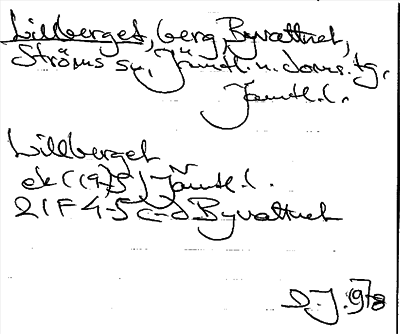 Lillberget, berg, Byvattnet,
Ströms sn, Jämtl. n. doms. tg.
Jämtl. l.
Lillberget
ek (1975) Jämtl. l.
21F 4-5 c-d Byvattnet
D. J. 1978